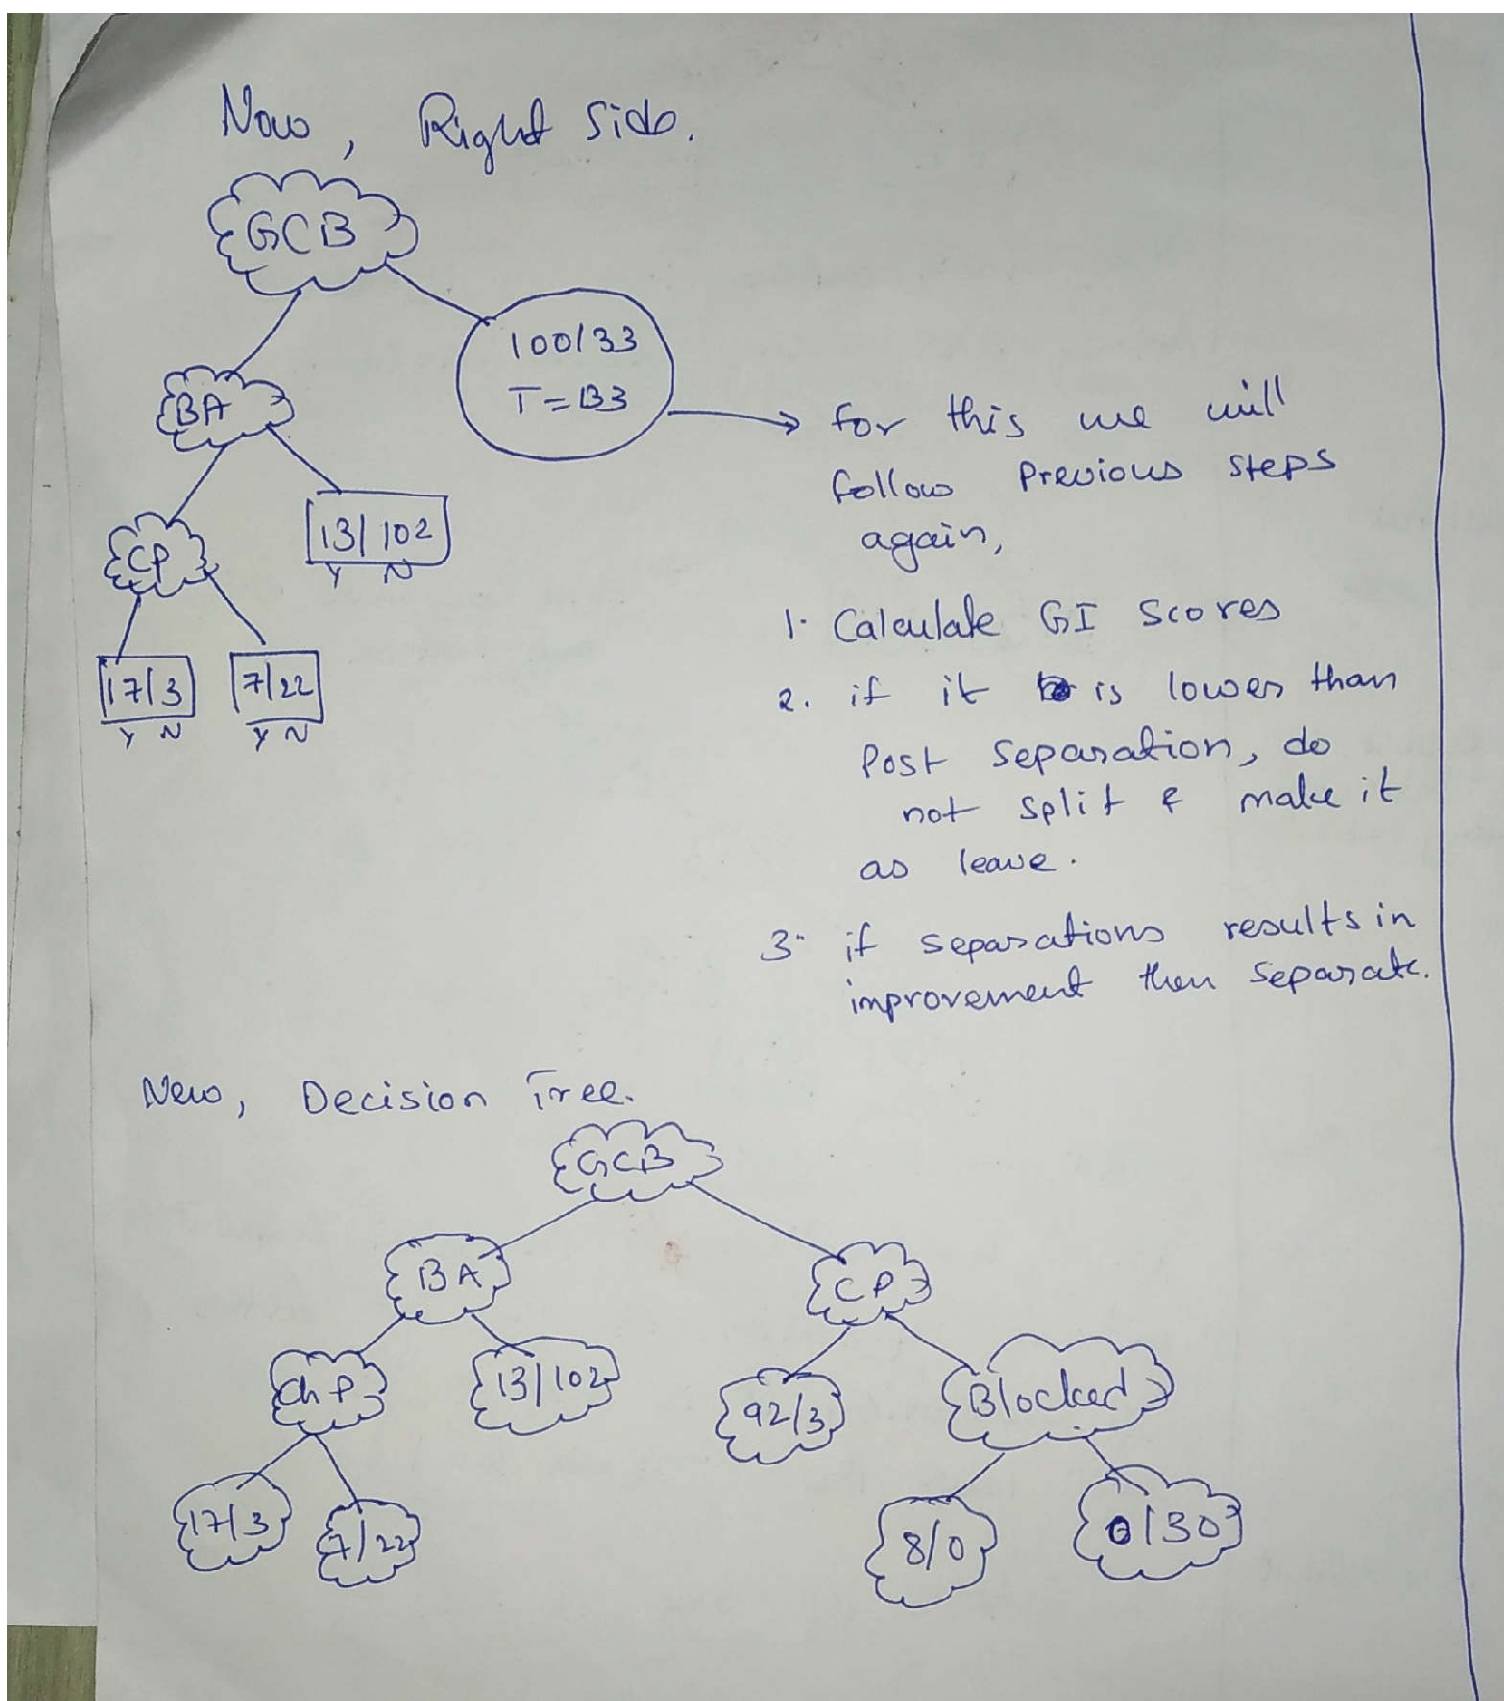 Now, Right Side.
GCB
100/33
T=133
BA
for this we will
follow Previous steps
again,
13/102
Y N
CP
1. Calculate GI Scores
17/3
Y N
7/22
Y N
2. if it is lower than
Post Separation, do
not split & make it
as leave.
3. if separations results in
improvement then Separate.
New, Decision Tree.
GCB
BA
CP
Ch P
13/102
92/3
Blocked
17/3
7/22
8/0
0/30